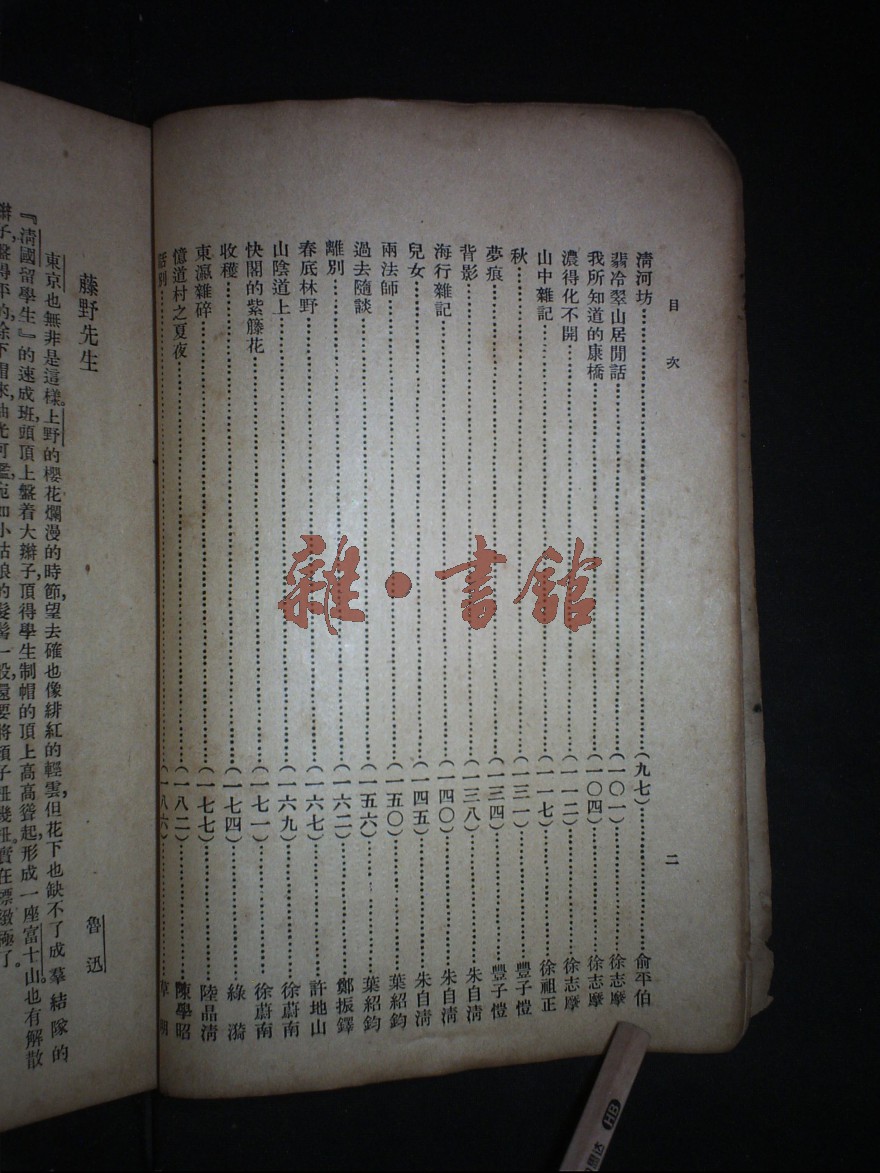 目次
二
清河坊(九七)俞平伯
翡冷翠山居閒話(一〇一)徐志摩
我所知道的康橋(一〇四)徐志摩
濃得化不開(一一二)徐志摩
山中雜記(一一七)徐祖正
秋(一三一)豐子愷
夢痕(一三四)豐子愷
背影(一三八)朱自清
海行雜記(一四〇)朱自清
兒女(一四五)朱自清
兩法師(一五〇)葉紹鈞
過去隨談(一五六)葉紹鈞
離別(一六二)鄭振鐸
春底林野(一六七)許地山
山陰道上(一六九)徐蔚南
快閣的紫籐花(一七一)徐蔚南
收穫(一七四)綠漪
東瀛雜碎(一七七)陸晶清
憶道村之夏夜(一八二)陳學昭
話別(一八六)
藤野先生
魯迅
東京也無非是這樣。上野的櫻花爛漫的時節,望去確也像緋紅的輕雲,但花下也缺不了成羣結隊的
『清國留學生』的速成班,頭頂上盤着大辮子,頂得學生制帽的頂上高高聳起,形成一座富士山。也有解散
辮子,盤得平的,除下帽來,油光可鑑,宛如小姑娘的髮髻一般,還要將頸子扭幾扭。實在標緻極了。
雜·書館
HB